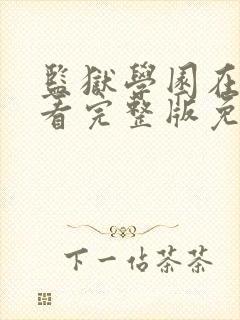 監獄學園在
看完整版免
下一佔茶茶